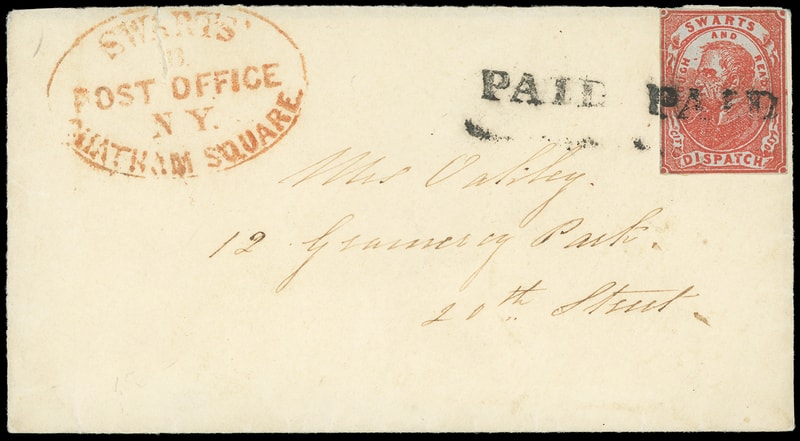 SWARTS'
POST OFFICE
N Y.
CHATHAM SQUARE.
PAID PAID
SWARTS
AND
ROUGH READY
CITY DISPATCH POST
Mrs Oakley.
12 Gramercy Park.
20th Street.